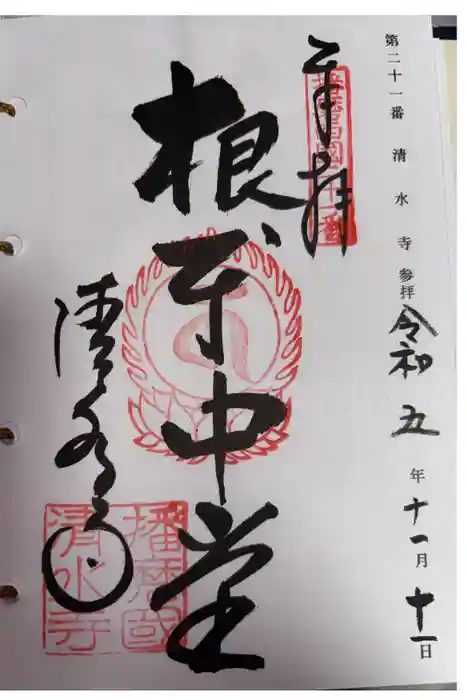 第二十一番 清水寺 参拝 令和五年十一月十一日
奉拝
西國二十一番
根本中堂
清水寺
播磨國
清水寺